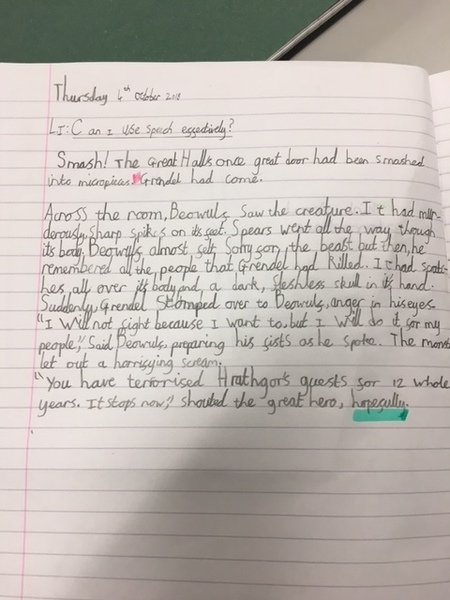 Thursday 4th October 2018
LI: Can I use speech effectively?
Smash! The Great Halls once great door had been smashed
into micropieces. Grendel had come.
Across the room, Beowulf saw the creature. It had mur-
derously sharp spikes on its feet. Spears went all the way though
its body. Beowulf almost felt sorry for, the beast but then, he
remembered all the people that Grendel had killed. It had scratc-
hes, all over its body and, a dark, fleshless skull in its hand.
Suddenly, Grendel stomped over to Beowulf, anger in his eyes.
"I will not fight because I want to, but I will do it for my
people," said Beowulf, preparing his fists as he spoke. The monst
let out a horrifying scream.
"You have terrorised Hrathgor's guests for 12 whole
years. It stops now," shouted the great hero, hopefully.